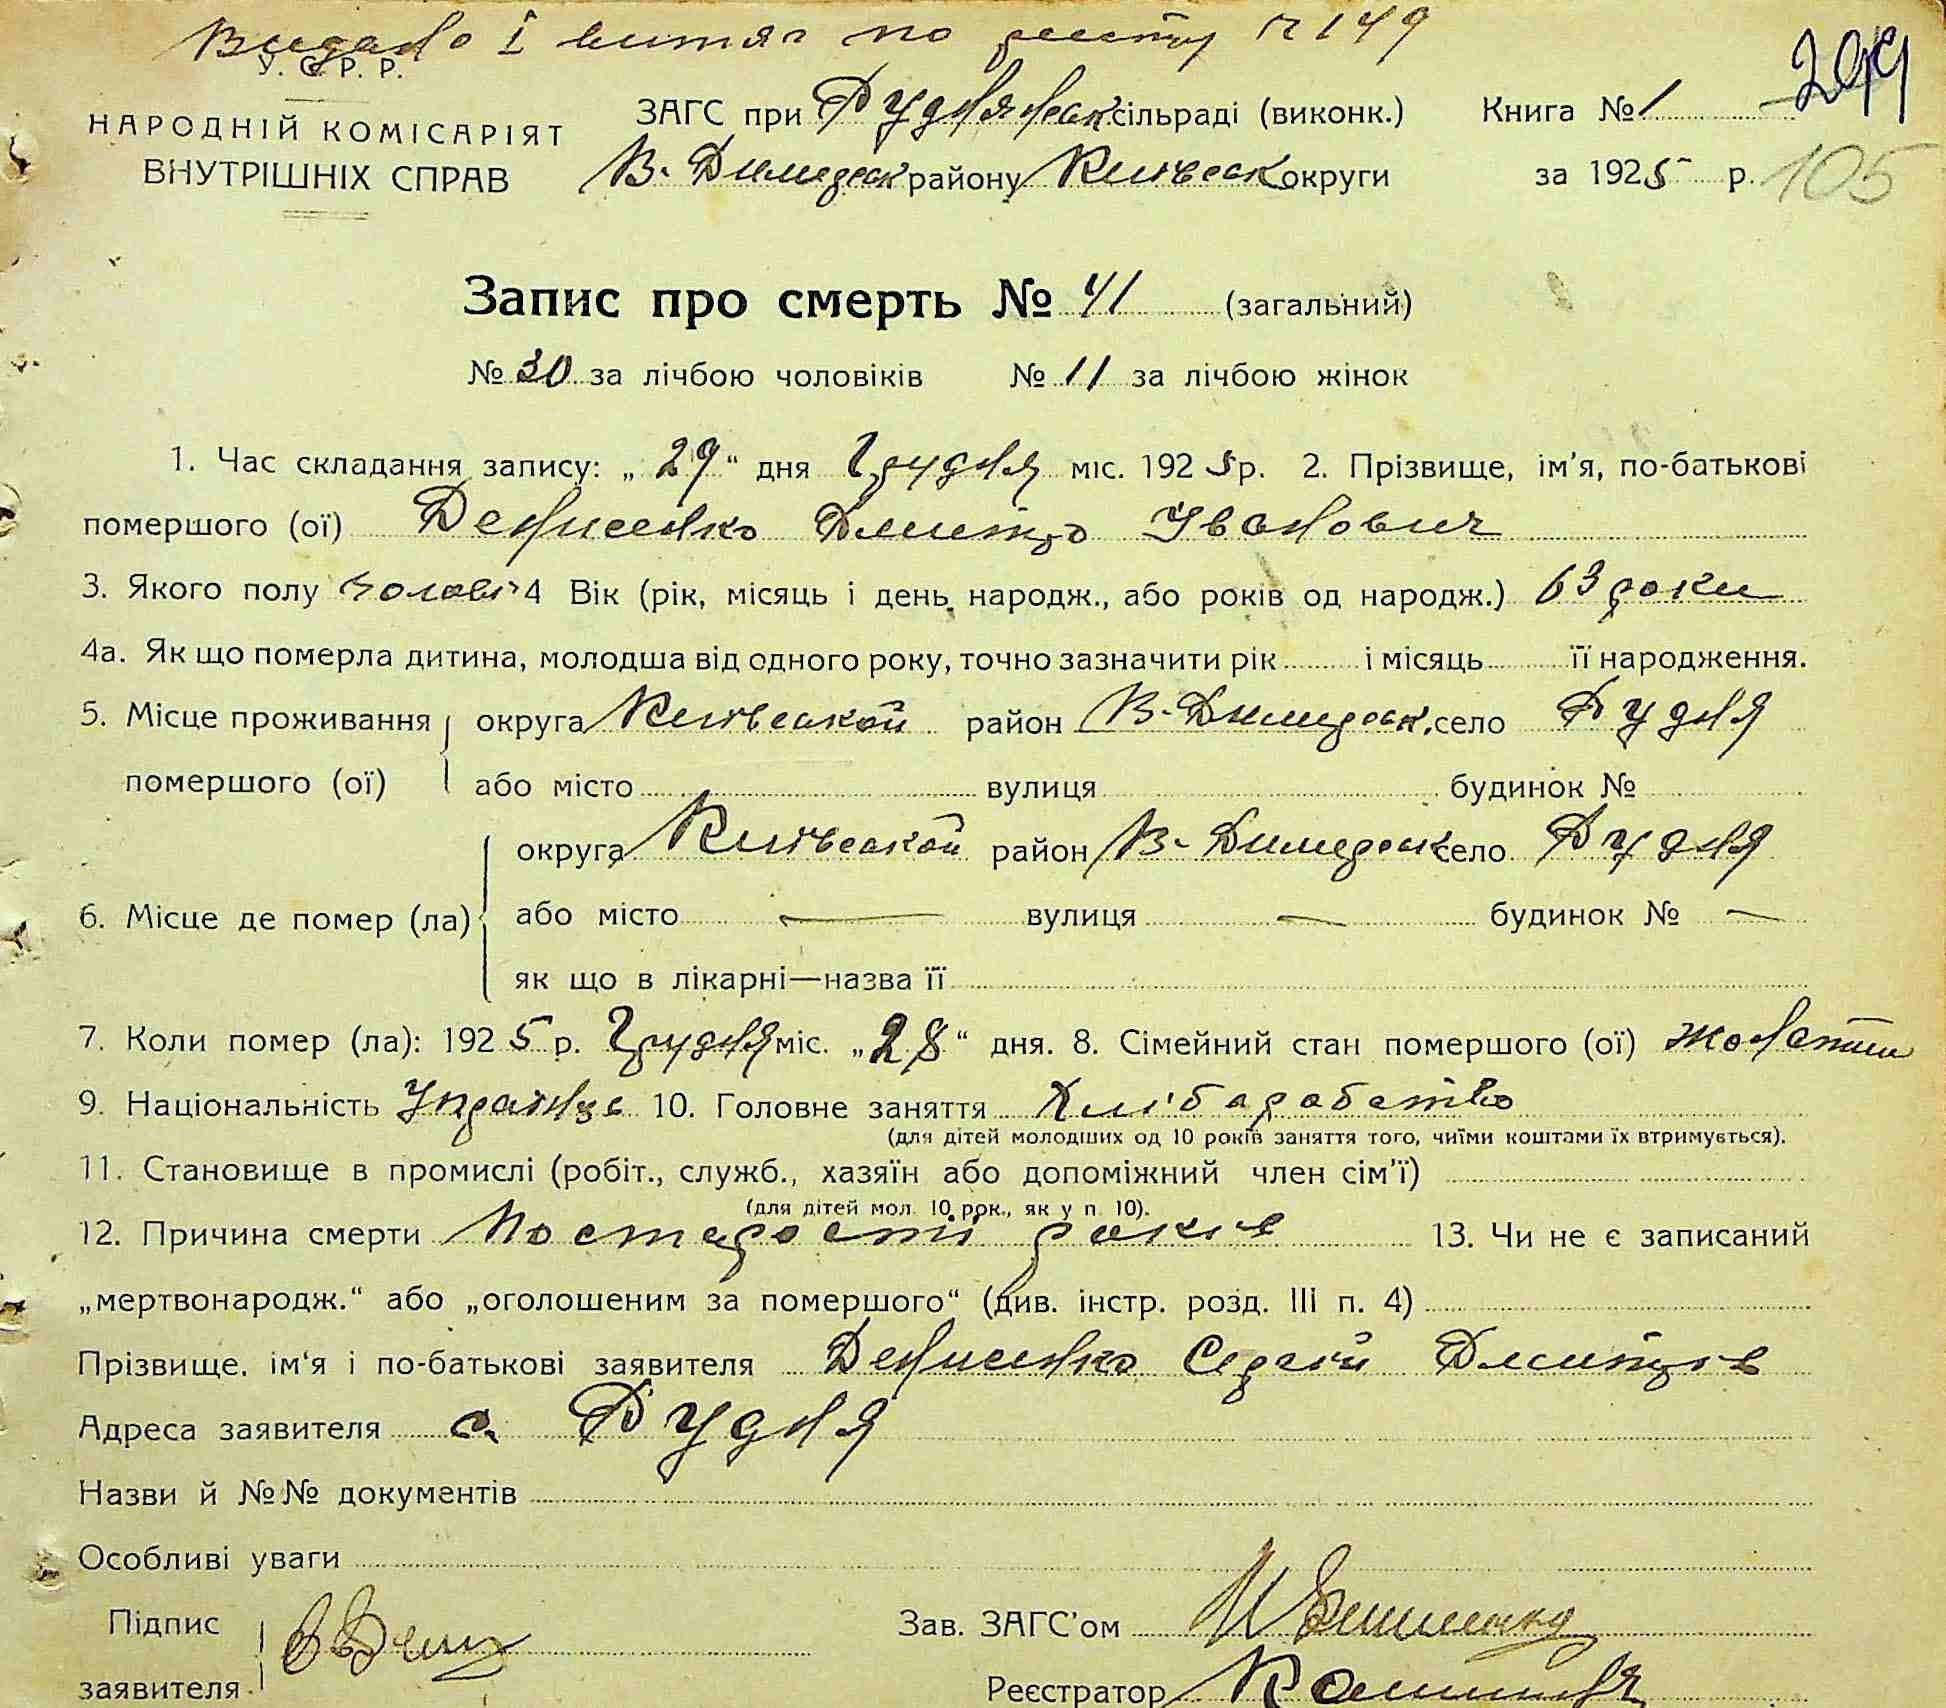 Видано і витяг по реєстру № 149
У. С. Р. Р.
НАРОДНІЙ КОМІСАРІЯТ
ВНУТРІШНІХ СПРАВ
ЗАГС при Руднянськ сільраді (виконк.)
В. Димерськ району Київськ округи
Книга № 1
за 1925 р.
105
Запис про смерть № 41 (загальний)
№ 30 за лічбою чоловіків № 11 за лічбою жінок
1. Час складання запису: „ 29 “ дня Грудня міс. 1925 р. 2. Прізвище, ім'я, по-батькові
помершого (ої) Денисенко Дмитро Іванович
3. Якого полу чолові 4 Вік (рік, місяць і день народж., або років од народж.) 63 роки
4а. Як що померла дитина, молодша від одного року, точно зазначити рік і місяць її народження.
5. Місце проживання помершого (ої) округа Київської район В-Димерськ. село Рудня
або місто вулиця будинок №
6. Місце де помер (ла) округа Київської район В-Димерськ село Рудня
або місто — вулиця — будинок № —
як що в лікарні—назва її
7. Коли помер (ла): 1925 р. Грудня міс. „28“ дня. 8. Сімейний стан помершого (ої) жонатий
9. Національність Українце 10. Головне заняття Хлібарабство
(для дітей молодших од 10 років заняття того, чиїми коштами їх втримується).
11. Становище в промислі (робіт., служб., хазяїн або допоміжний член сім'ї)
(для дітей мол. 10 рок., як у п. 10).
12. Причина смерти По старості років 13. Чи не є записаний
„мертвонародж.“ або „оголошеним за помершого“ (див. інстр. розд. III п. 4)
Прізвище, ім'я і по-батькові заявителя Денисенко Сергій Дмитров
Адреса заявителя с. Рудня
Назви й №№ документів
Особливі уваги
Підпис заявителя
Зав. ЗАГС'ом
Реєстратор